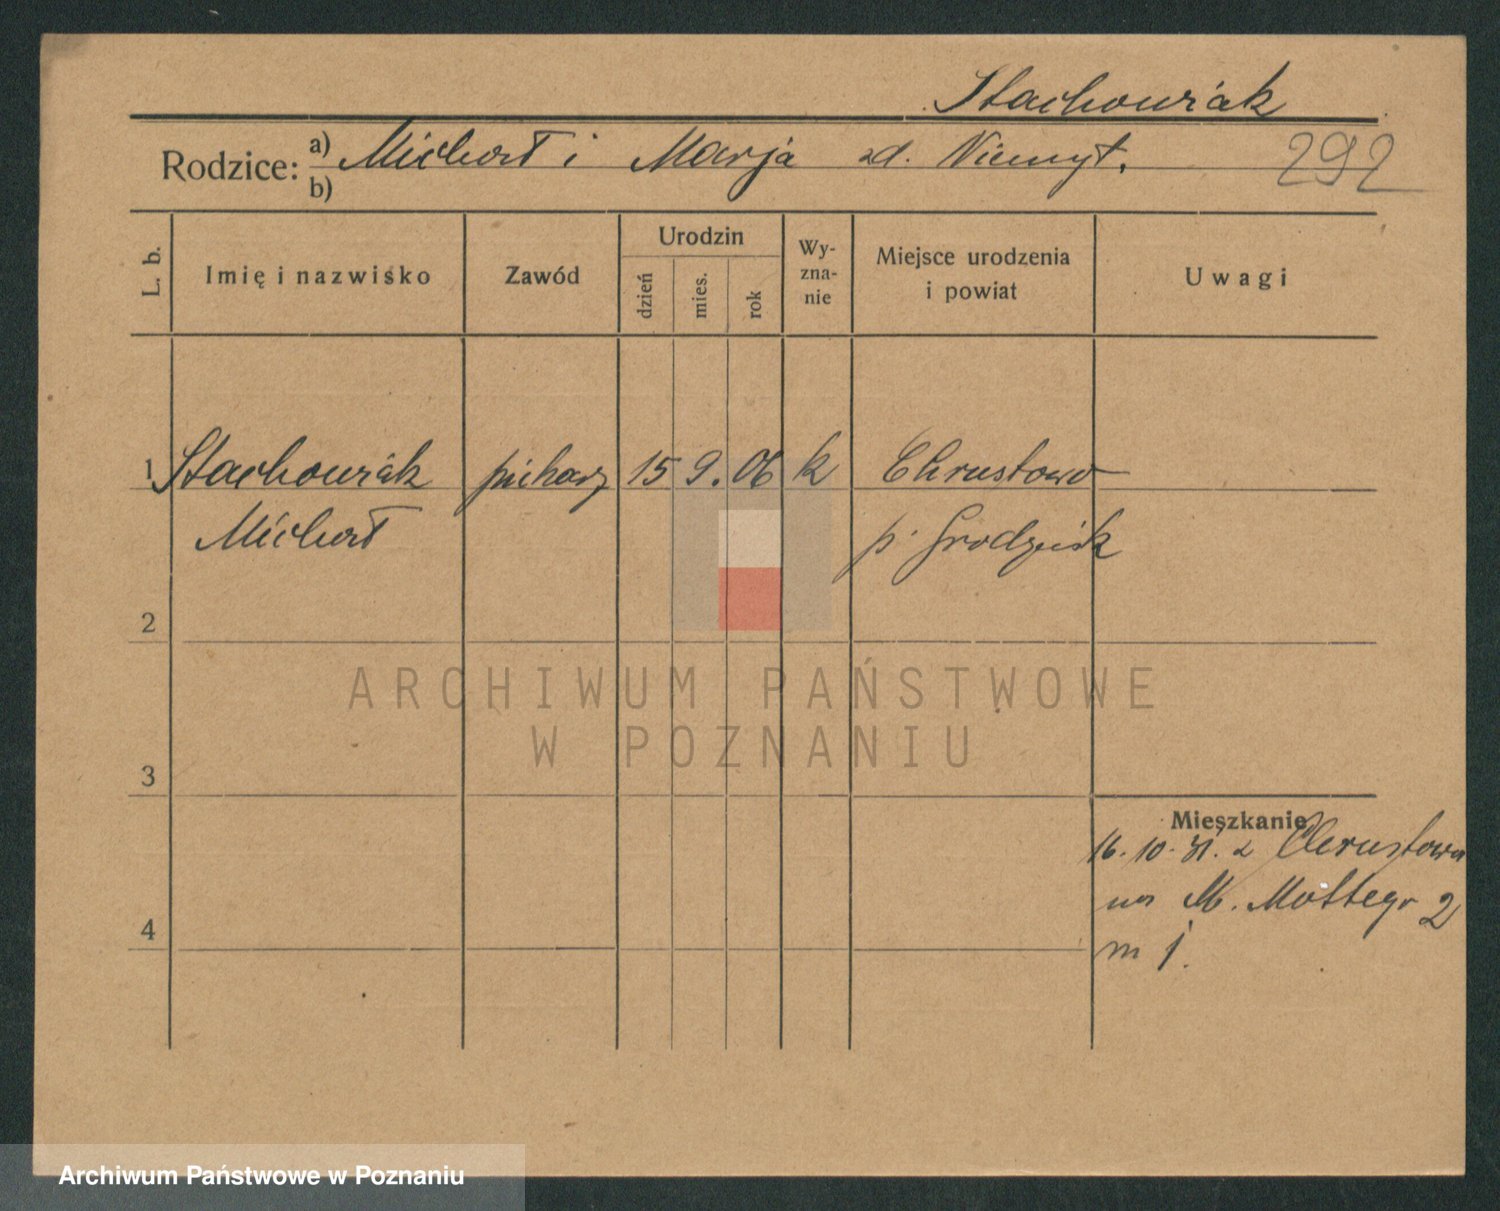 Stachowiak
Rodzice: a) Michał i Marja zd. Niemyt. 292
b)
L. b. Imię i nazwisko Zawód Urodzin dzień mies. rok Wy-zna-nie Miejsce urodzenia i powiat Uwagi
1 Stachowiak piekarz 15 9. 06 k Chrustowo
Michał p. Grodzisk
2
ARCHIWUM PAŃSTWOWE
W POZNANIU
3
Mieszkanie
16. 10. 31. z Chrustowa
na M. Mottego 2
4
m 1.
Archiwum Państwowe w Poznaniu